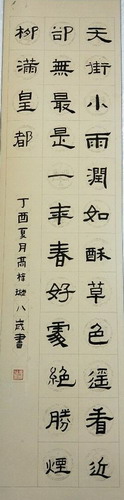 天街小雨潤如酥草色遥看近
卻無最是一年春好處絶勝煙
柳滿皇都
丁酉夏月高梓珊八歲書